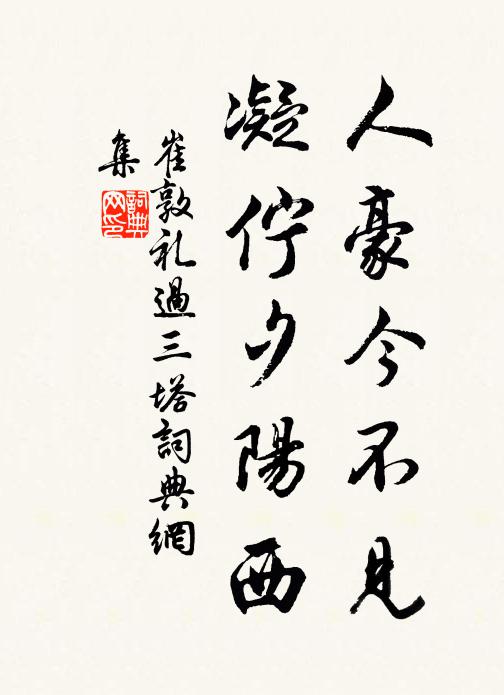 人豪今不見
凝佇夕陽西
崔敦礼過三塔詞典網
集
詞典
网印